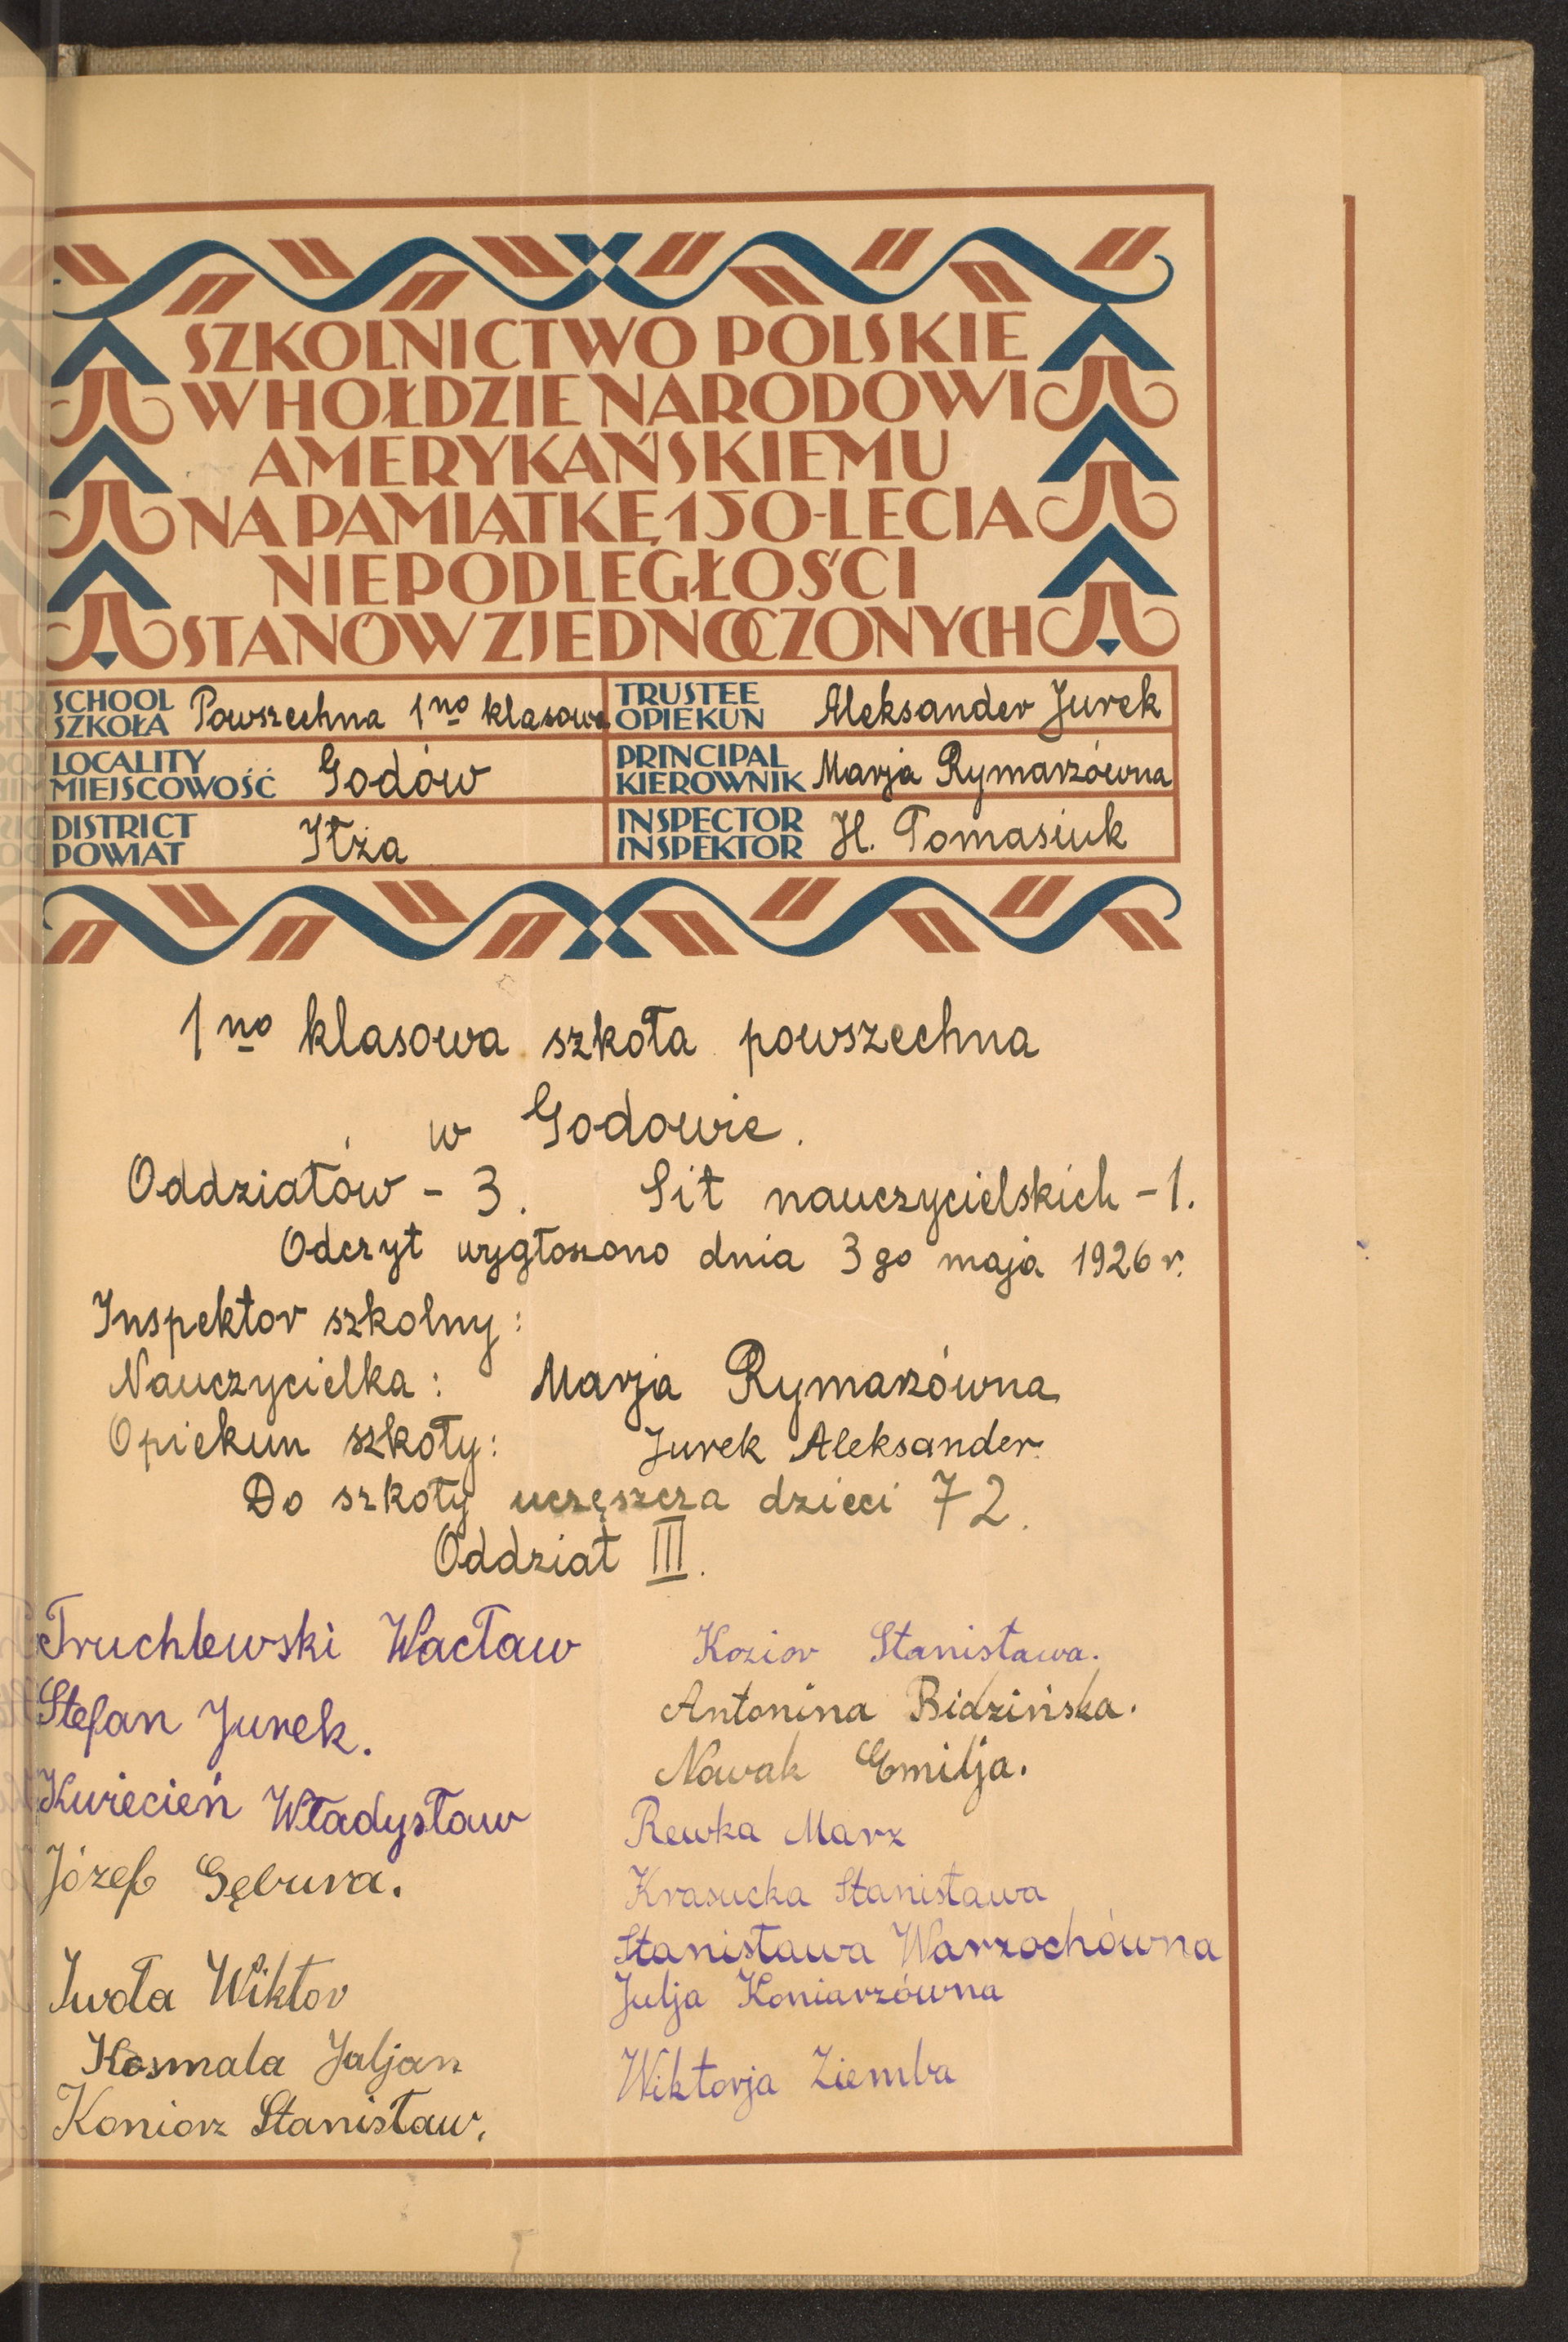 SZKOLNICTWO POLSKIE
W HOŁDZIE NARODOWI
AMERYKAŃSKIEMU
NA PAMIĄTKĘ 150-LECIA
NIEPODLEGŁOŚCI
STANÓW ZJEDNOCZONYCH
SCHOOL
SZKOŁA Powszechna 1no klasowa
TRUSTEE
OPIEKUN Aleksander Jurek
LOCALITY
MIEJSCOWOŚĆ Godów
PRINCIPAL
KIEROWNIK Marja Rymarzówna
DISTRICT
POWIAT Iłża
INSPECTOR
INSPEKTOR H. Tomasiuk
1no klasowa szkoła powszechna
w Godowie.
Oddziałów - 3. Sił nauczycielskich - 1.
Odczyt wygłoszono dnia 3go maja 1926 r.
Inspektor szkolny:
Nauczycielka: Marja Rymarzówna
Opiekun szkoły: Jurek Aleksander.
Do szkoły uczęszcza dzieci 72.
Oddział III.
Truchlewski Wacław
Stefan Jurek.
Kwiecień Władysław
Józef Gębura.
Iwoła Wiktor
Kosmala Juljan
Koniorz Stanisław.
Kozior Stanisława.
Antonina Bidzińska.
Nowak Emilja.
Rewka Marz
Krasucka Stanisława
Stanisława Warzochówna
Julja Koniarzówna
Wiktorja Ziemba